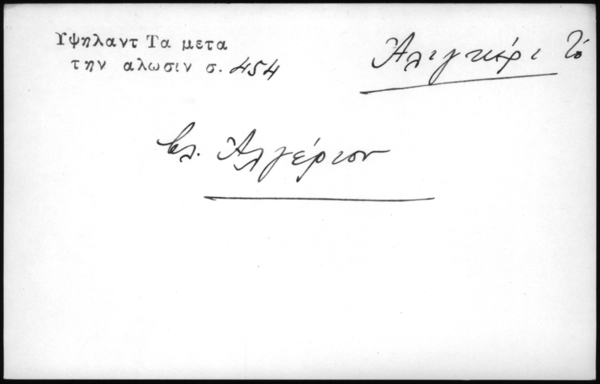 Υψηλαντ Τα μετα
την αλωσιν σ. 454
Ἀλιγκέρι Τό
βλ. Ἀλγέριον